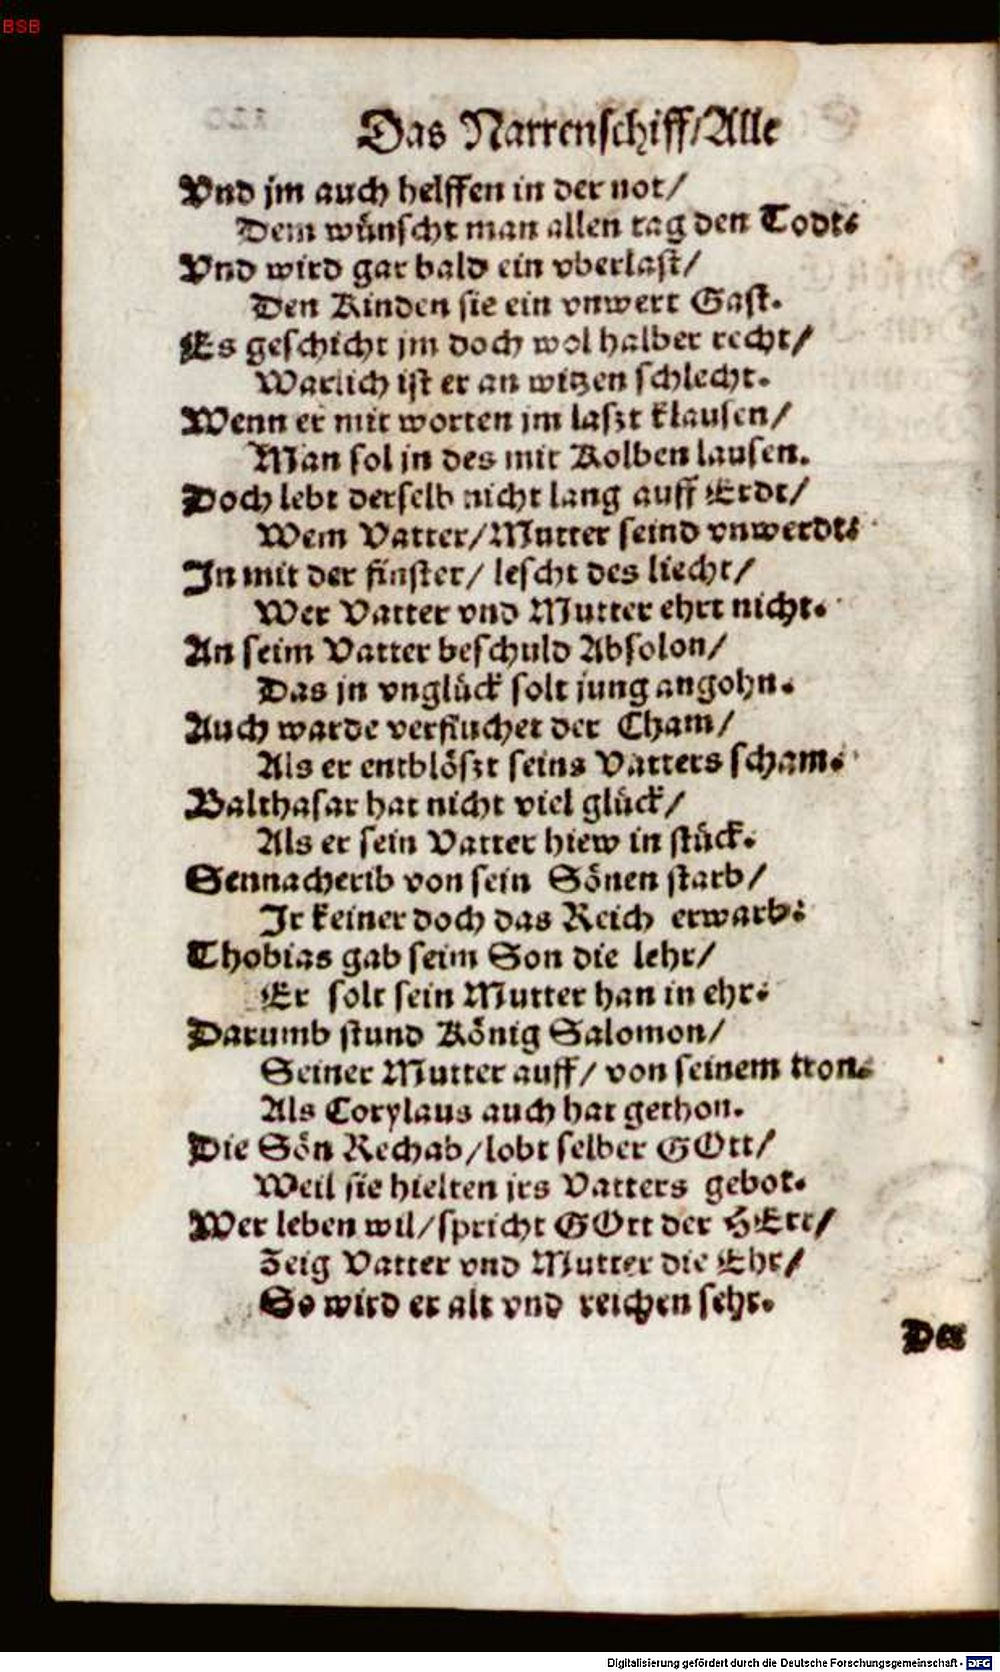 BSB
Das Narrenschiff/Alle
Vnd jm auch helffen in der not/
Dem wünscht man allen tag den Todt.
Vnd wird gar bald ein vberlast/
Den Kinden sie ein vnwert Gast.
Es geschicht jm doch wol halber recht/
Warlich ist er an witzen schlecht.
Wenn er mit worten jm laszt klausen/
Man sol jn des mit Kolben lausen.
Doch lebt derselb nicht lang auff Erdt/
Wem Vatter/Mutter seind vnwerdt.
In mit der finster/ lescht des liecht/
Wer Vatter vnd Mutter ehrt nicht.
An seim Vatter beschuld Absolon/
Das jn vnglück solt jung angohn.
Auch warde verfluchet der Cham/
Als er entblöszt seins Vatters scham.
Balthasar hat nicht viel glück/
Als er sein Vatter hiew in stück.
Sennacherib von sein Sönen starb/
Ir keiner doch das Reich erwarb.
Thobias gab seim Son die lehr/
Er solt sein Mutter han in ehr.
Darumb stund König Salomon/
Seiner Mutter auff/ von seinem tron.
Als Corylaus auch hat gethon.
Die Sön Rechab/lobt selber GOtt/
Weil sie hielten jrs Vatters gebot.
Wer leben wil/spricht GOtt der HErr/
Zeig Vatter vnd Mutter die Ehr/
So wird er alt vnd reichen sehr.
Der
Digitalisierung gefördert durch die Deutsche Forschungsgemeinschaft - DFG